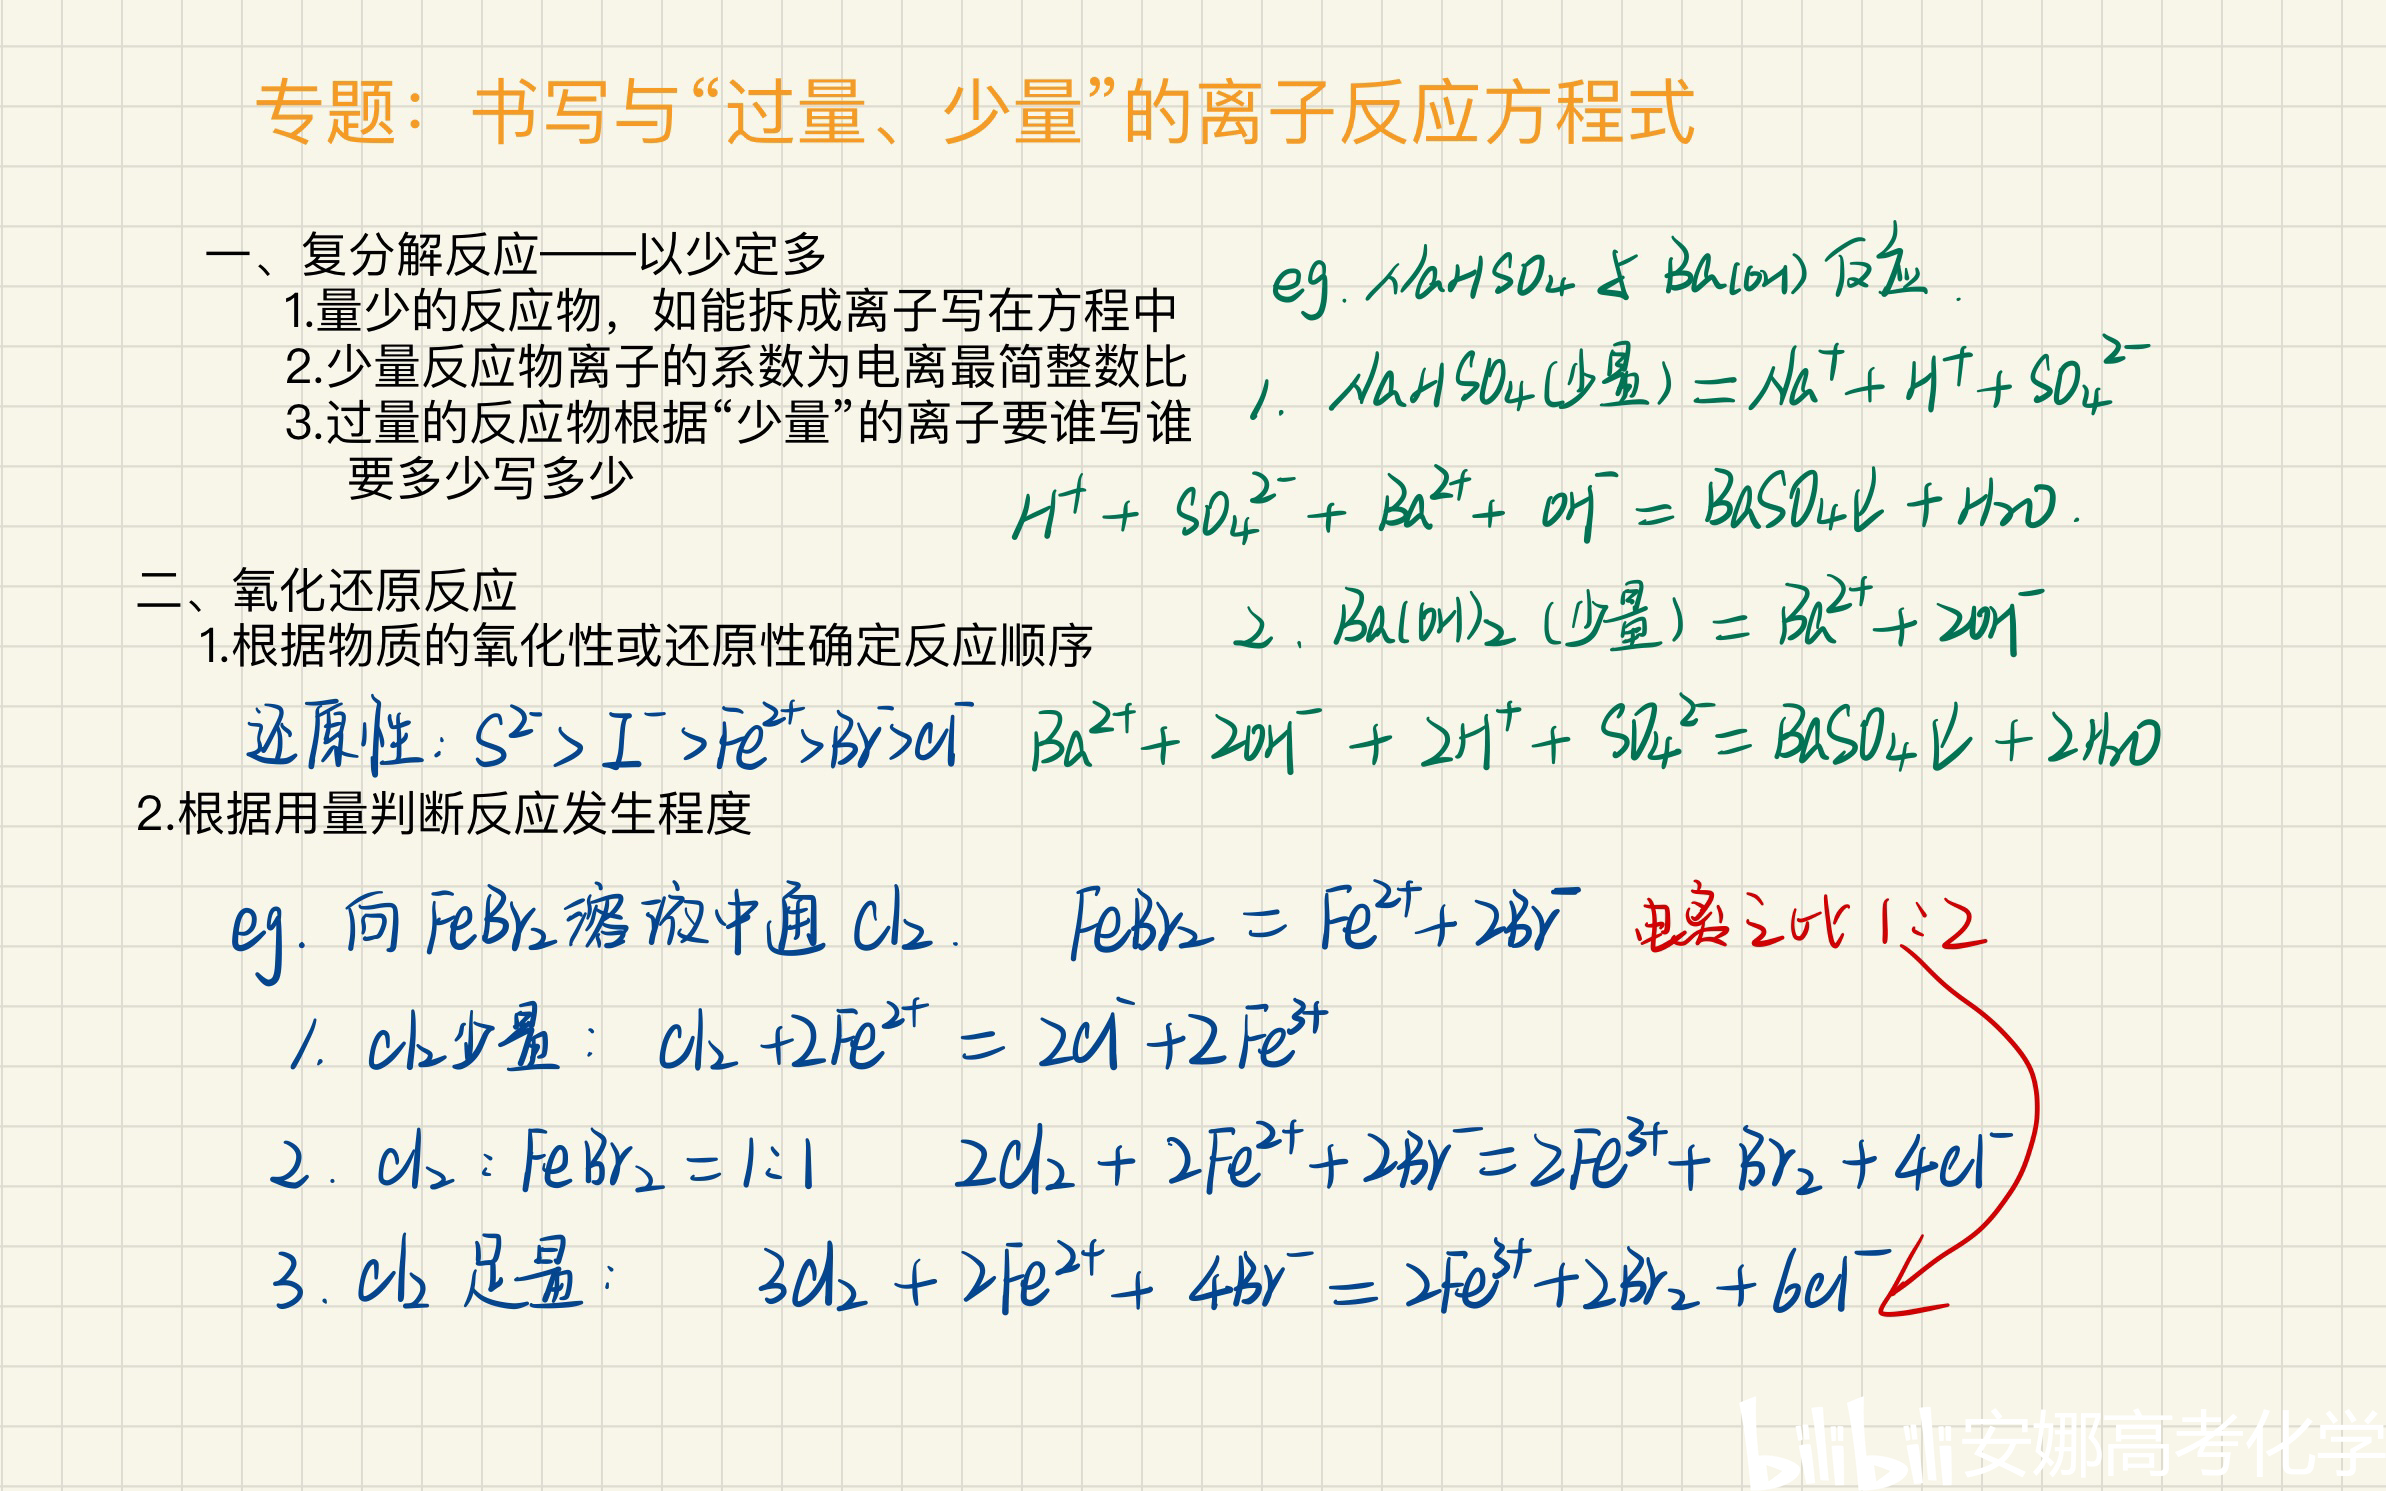 专题：书写与“过量、少量”的离子反应方程式
一、复分解反应——以少定多
1.量少的反应物，如能拆成离子写在方程中
2.少量反应物离子的系数为电离最简整数比
3.过量的反应物根据“少量”的离子要谁写谁
要多少写多少
eg. NaHSO₄与Ba(OH)反应.
1. NaHSO₄(少量) = Na⁺ + H⁺ + SO₄²⁻
H⁺ + SO₄²⁻ + Ba²⁺ + OH⁻ = BaSO₄↓ + H₂O.
2. Ba(OH)₂ (少量) = Ba²⁺ + 2OH⁻
Ba²⁺ + 2OH⁻ + 2H⁺ + SO₄²⁻ = BaSO₄↓ + 2H₂O
二、氧化还原反应
1.根据物质的氧化性或还原性确定反应顺序
还原性: S²⁻ > I⁻ > Fe²⁺ > Br⁻ > Cl⁻
2.根据用量判断反应发生程度
eg. 向FeBr₂溶液中通Cl₂. FeBr₂ = Fe²⁺ + 2Br⁻ 电离之比 1:2
1. Cl₂少量: Cl₂ + 2Fe²⁺ = 2Cl⁻ + 2Fe³⁺
2. Cl₂ : FeBr₂ = 1:1 2Cl₂ + 2Fe²⁺ + 2Br⁻ = 2Fe³⁺ + Br₂ + 4Cl⁻
3. Cl₂足量: 3Cl₂ + 2Fe²⁺ + 4Br⁻ = 2Fe³⁺ + 2Br₂ + 6Cl⁻
bilibili 安娜高考化学